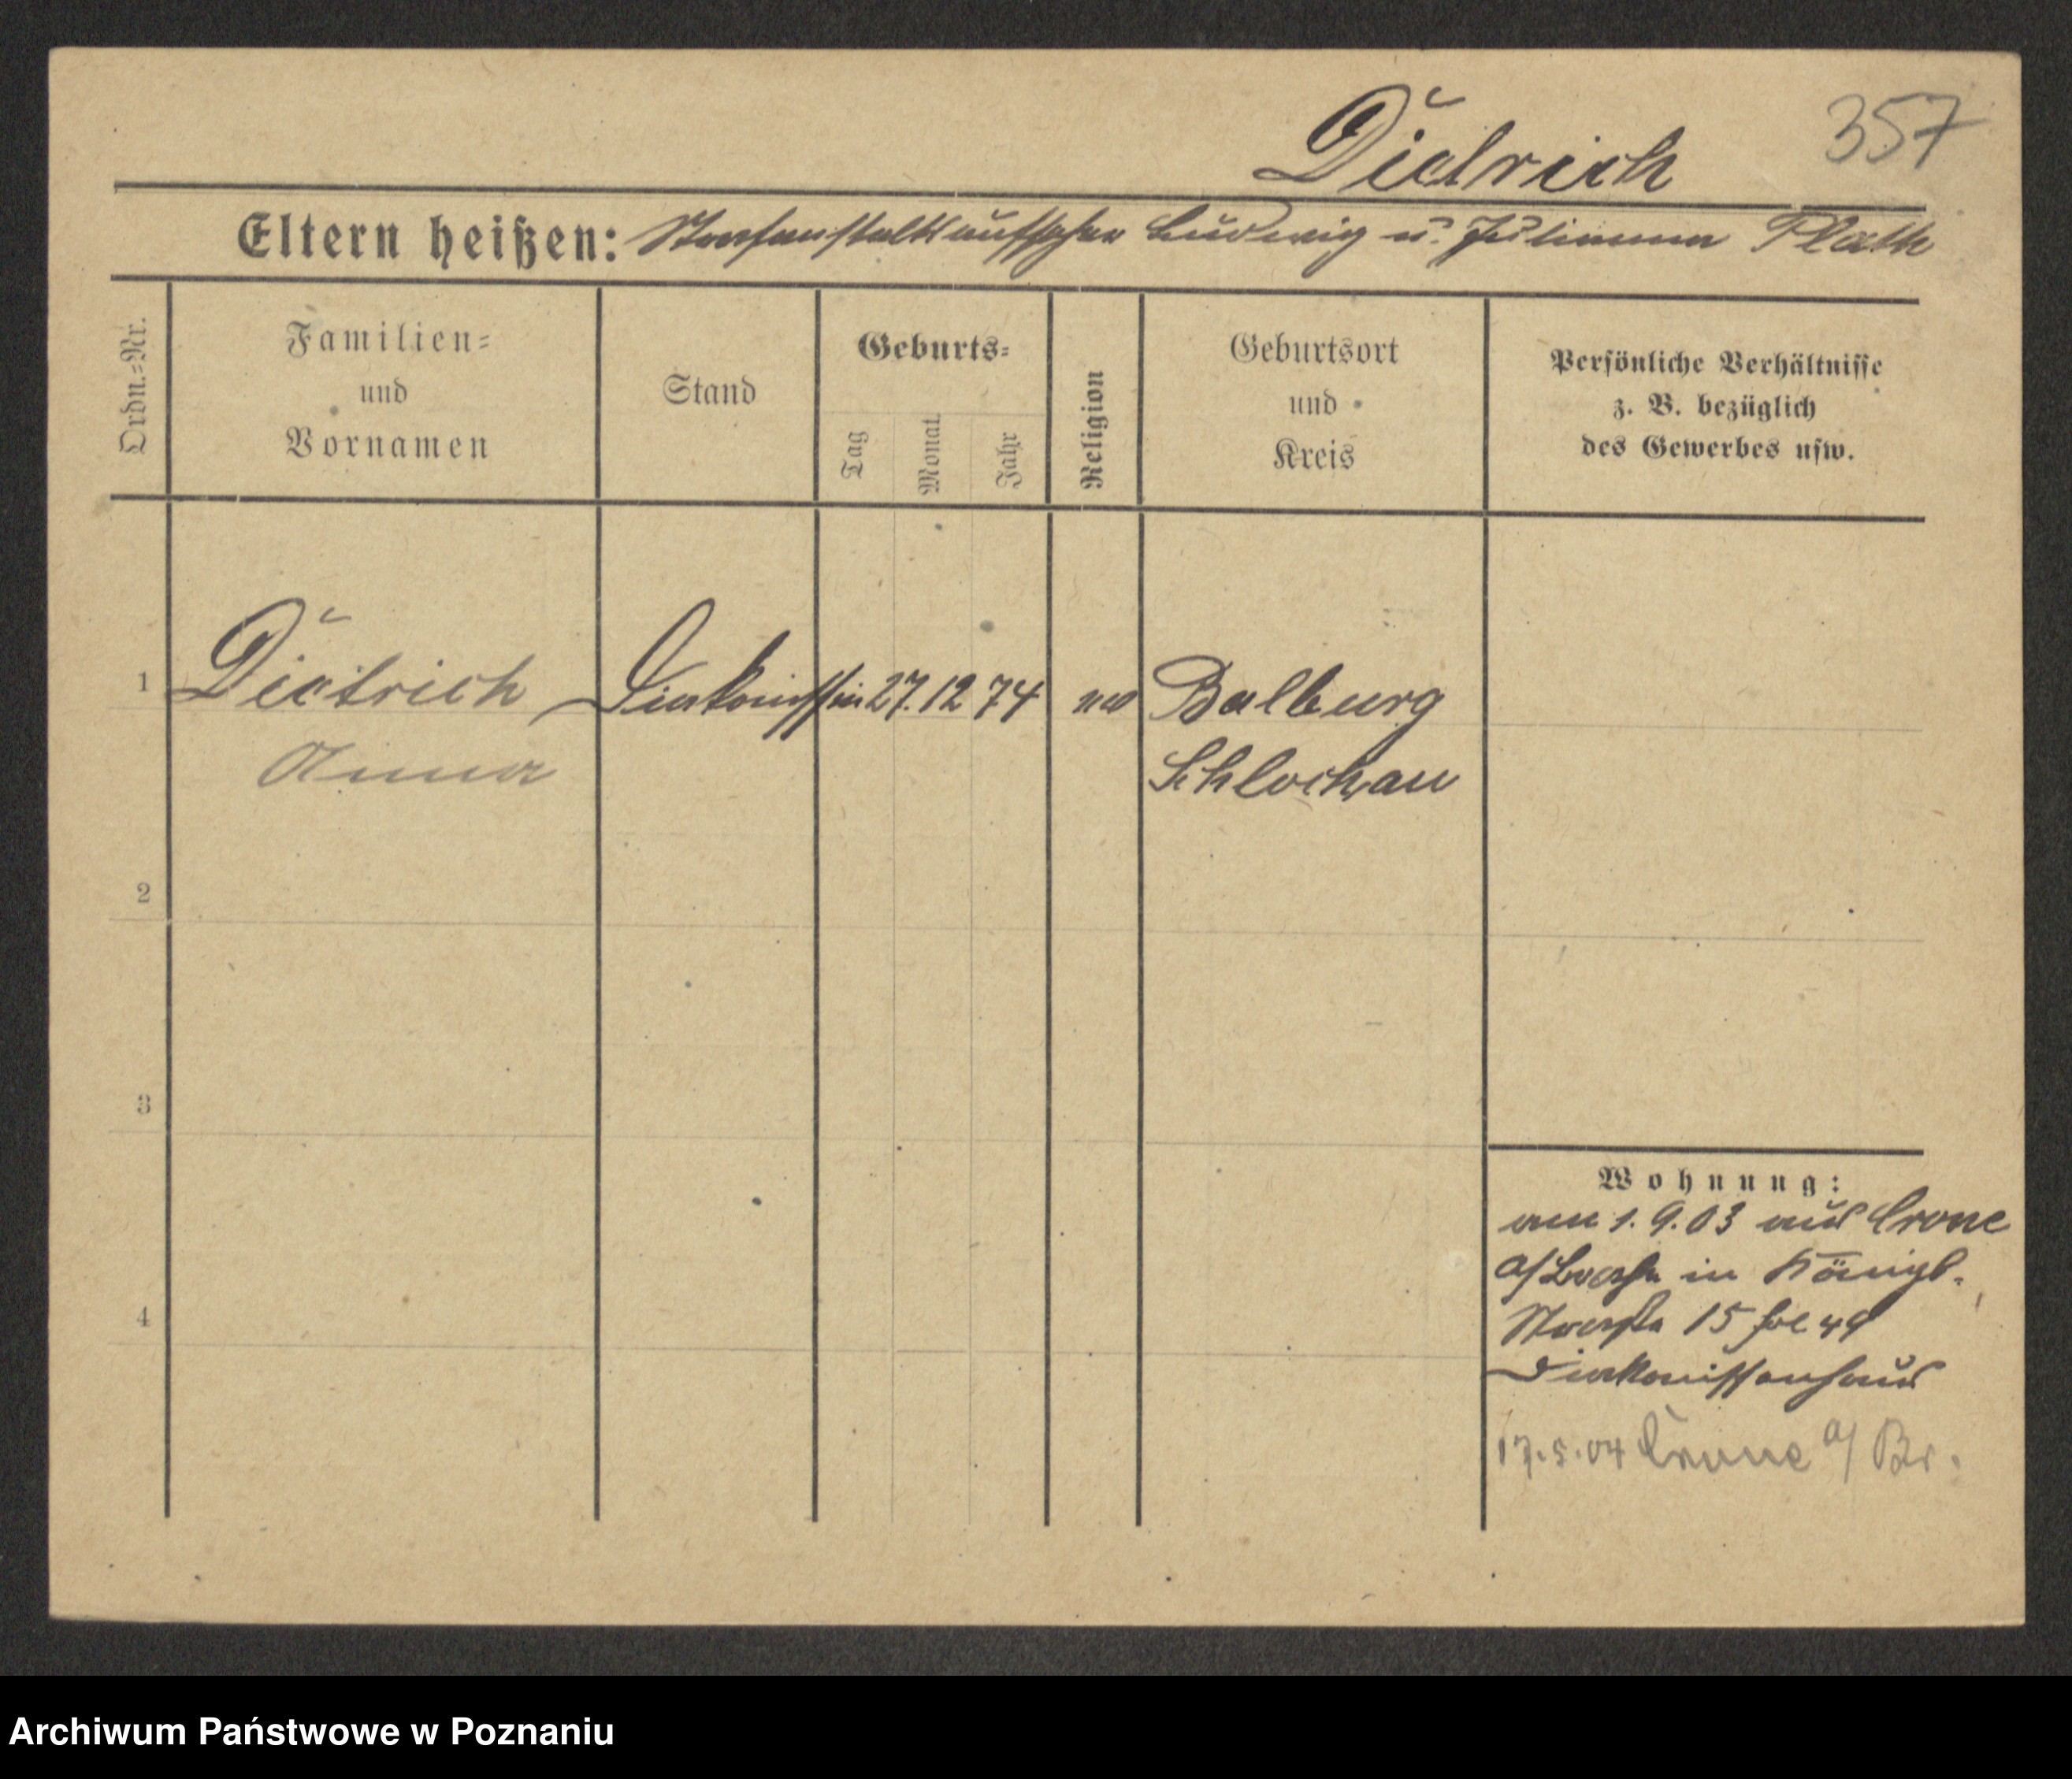 Dietrich 357
Eltern heißen: Strafanstaltsaufseher Ludwig u. Julianna Plath
Ordn.=Nr.
Familien=
und
Vornamen
Stand
Geburts=
Tag Monat Jahr
Religion
Geburtsort
und
Kreis
Persönliche Verhältnisse
z. B. bezüglich
des Gewerbes usw.
1 Dietrich Diakonissin 27. 12 74 ev Balburg
Anna Schlochau
2
3
4
Wohnung:
am 1. 9. 03 aus Crone
a/Brahe in Königl.
Straße 15 fol 49
Diakonissenhaus
17. 5. 04 Crone a/ Br.
Archiwum Państwowe w Poznaniu